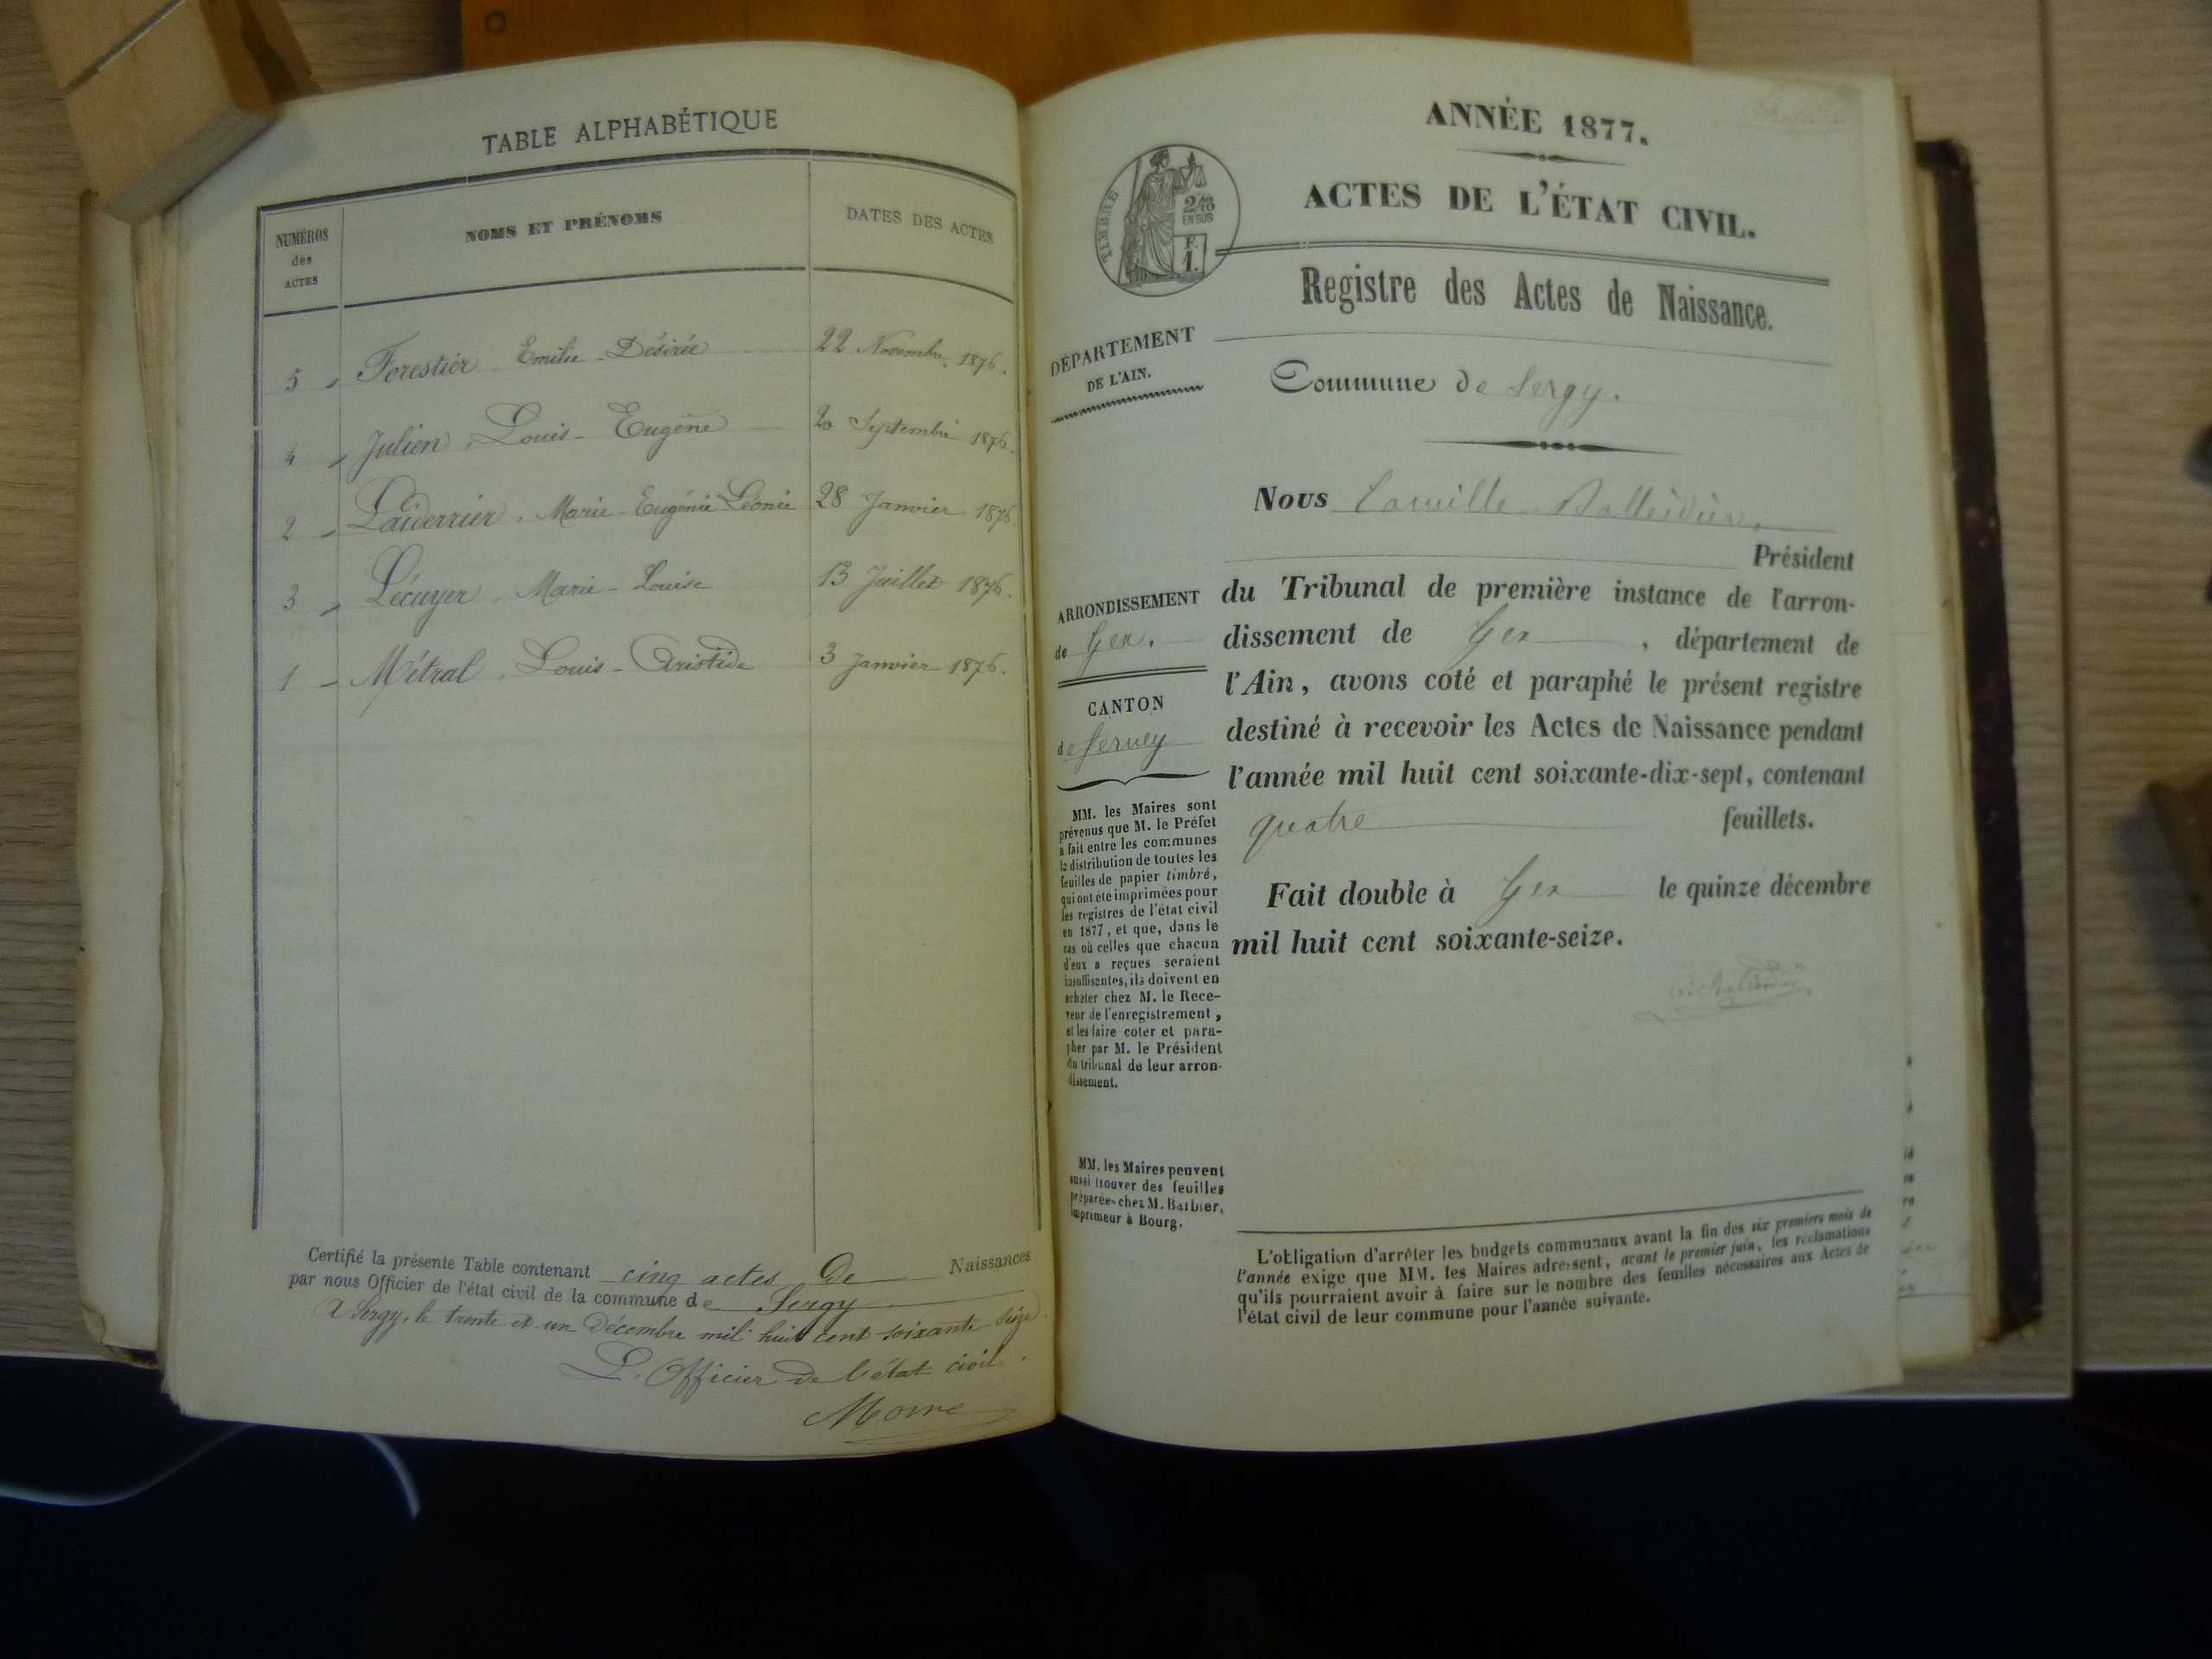 TABLE ALPHABÉTIQUE
NUMÉROS des ACTES
NOMS ET PRÉNOMS
DATES DES ACTES
5 Forestier Emilie-Désirée 22 Novembre 1876.
4 Julien, Louis-Eugène 20 Septembre 1876.
2 Laiderrier, Marie-Eugénie Léonie 28 Janvier 1876
3 Lécuyer, Marie-Louise 13 Juillet 1876.
1 Métral, Louis-Aristide 3 Janvier 1876.
Certifié la présente Table contenant cinq actes De Naissances
par nous Officier de l'état civil de la commune de Sergy
A Sergy, le trente et un Décembre mil huit cent soixante-seize
L'Officier de l'état civil.
ANNÉE 1877.
ACTES DE L'ÉTAT CIVIL.
TIMBRE
2/10
EN SUS
F.
1.
Registre des Actes de Naissance.
DÉPARTEMENT
DE L'AIN.
Commune de Sergy.
Nous Camille
Président
ARRONDISSEMENT
de Gex.
CANTON
de Ferney
du Tribunal de première instance de l'arron-
dissement de Gex, département de
l'Ain, avons coté et paraphé le présent registre
destiné à recevoir les Actes de Naissance pendant
l'année mil huit cent soixante-dix-sept, contenant
quatre feuillets.
Fait double à Gex le quinze décembre
mil huit cent soixante-seize.
MM. les Maires sont
prévenus que M. le Préfet
a fait entre les communes
la distribution de toutes les
feuilles de papier timbré,
qui ont été imprimées pour
les registres de l'état civil
en 1877, et que, dans le
cas où celles que chacun
d'eux a reçues seraient
insuffisantes, ils doivent en
acheter chez M. le Rece-
veur de l'enregistrement,
et les faire coter et para-
pher par M. le Président
du tribunal de leur arron-
dissement.
MM. les Maires peuvent
aussi trouver des feuilles
préparées chez M. Barbier,
imprimeur à Bourg.
L'obligation d'arrêter les budgets communaux avant la fin des six premiers mois de
l'année exige que MM. les Maires adressent, avant le premier juin, les réclamations
qu'ils pourraient avoir à faire sur le nombre des feuilles nécessaires aux Actes de
l'état civil de leur commune pour l'année suivante.